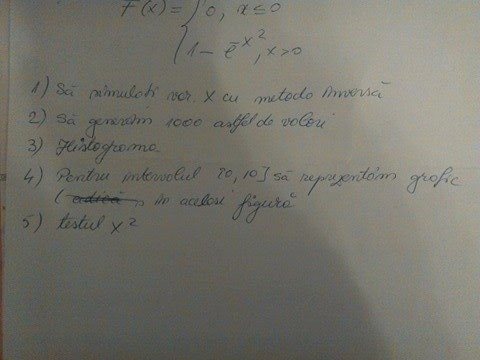 F(x) = { 0, x ≤ 0
1 - e^-x², x > 0
1) Să simulați var. X cu metoda inversă
2) Să generăm 1000 astfel de valori
3) Histograma
4) Pentru intervalul [0, 10] să reprezentăm grafic
( în același figură
5) testul χ²